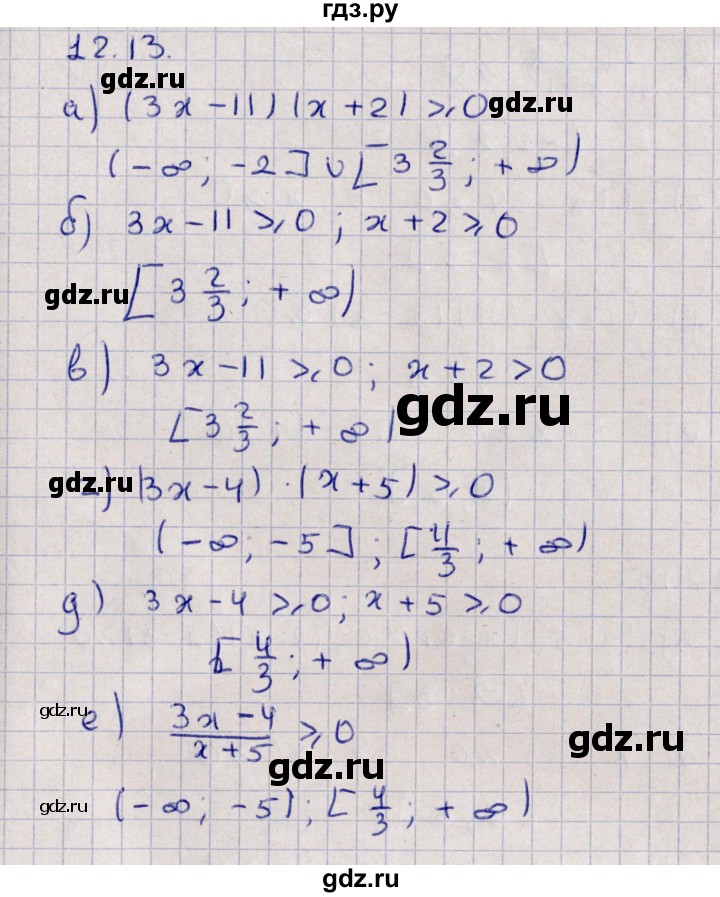 гдз.ру
12.13.
gdz.ru
а) (3x-11)(x+2)⩾0 gdz.ru
(-∞; -2]∪[3 2/3; +∞)
б) 3x-11⩾0; x+2⩾0
gdz.ru [3 2/3; +∞)
в) 3x-11⩾0; x+2>0
gdz.ru
[3 2/3; +∞)
gdz.ru
г) (3x-4)·(x+5)⩾0
(-∞; -5]; [4/3; +∞)
д) 3x-4⩾0; x+5⩾0
[4/3; +∞)
gdz.ru
е) (3x-4)/(x+5) ⩾0
gdz.ru
gdz.ru
gdz.ru (-∞; -5); [4/3; +∞)
gdz.ru